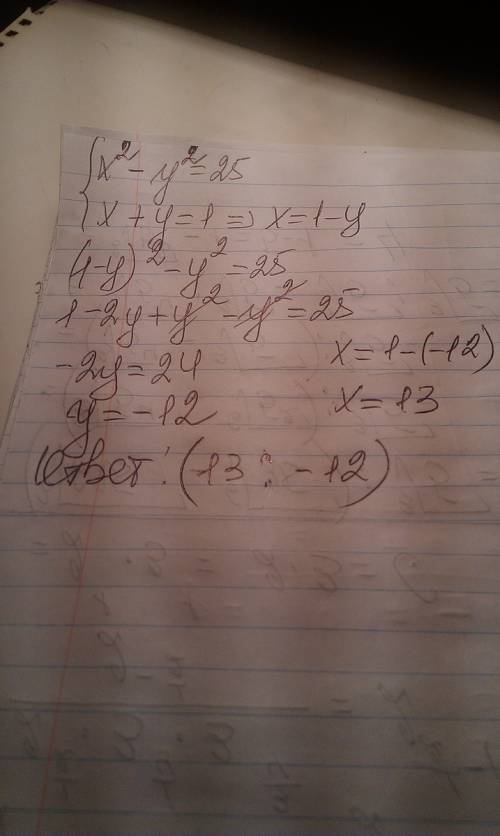 {x² - y² = 25
x + y = 1 => x = 1 - y
(1-y)² - y² = 25
1 - 2y + y² - y² = 25
-2y = 24
x = 1 - (-12)
y = -12
x = 13
Ответ: (13 ; -12)